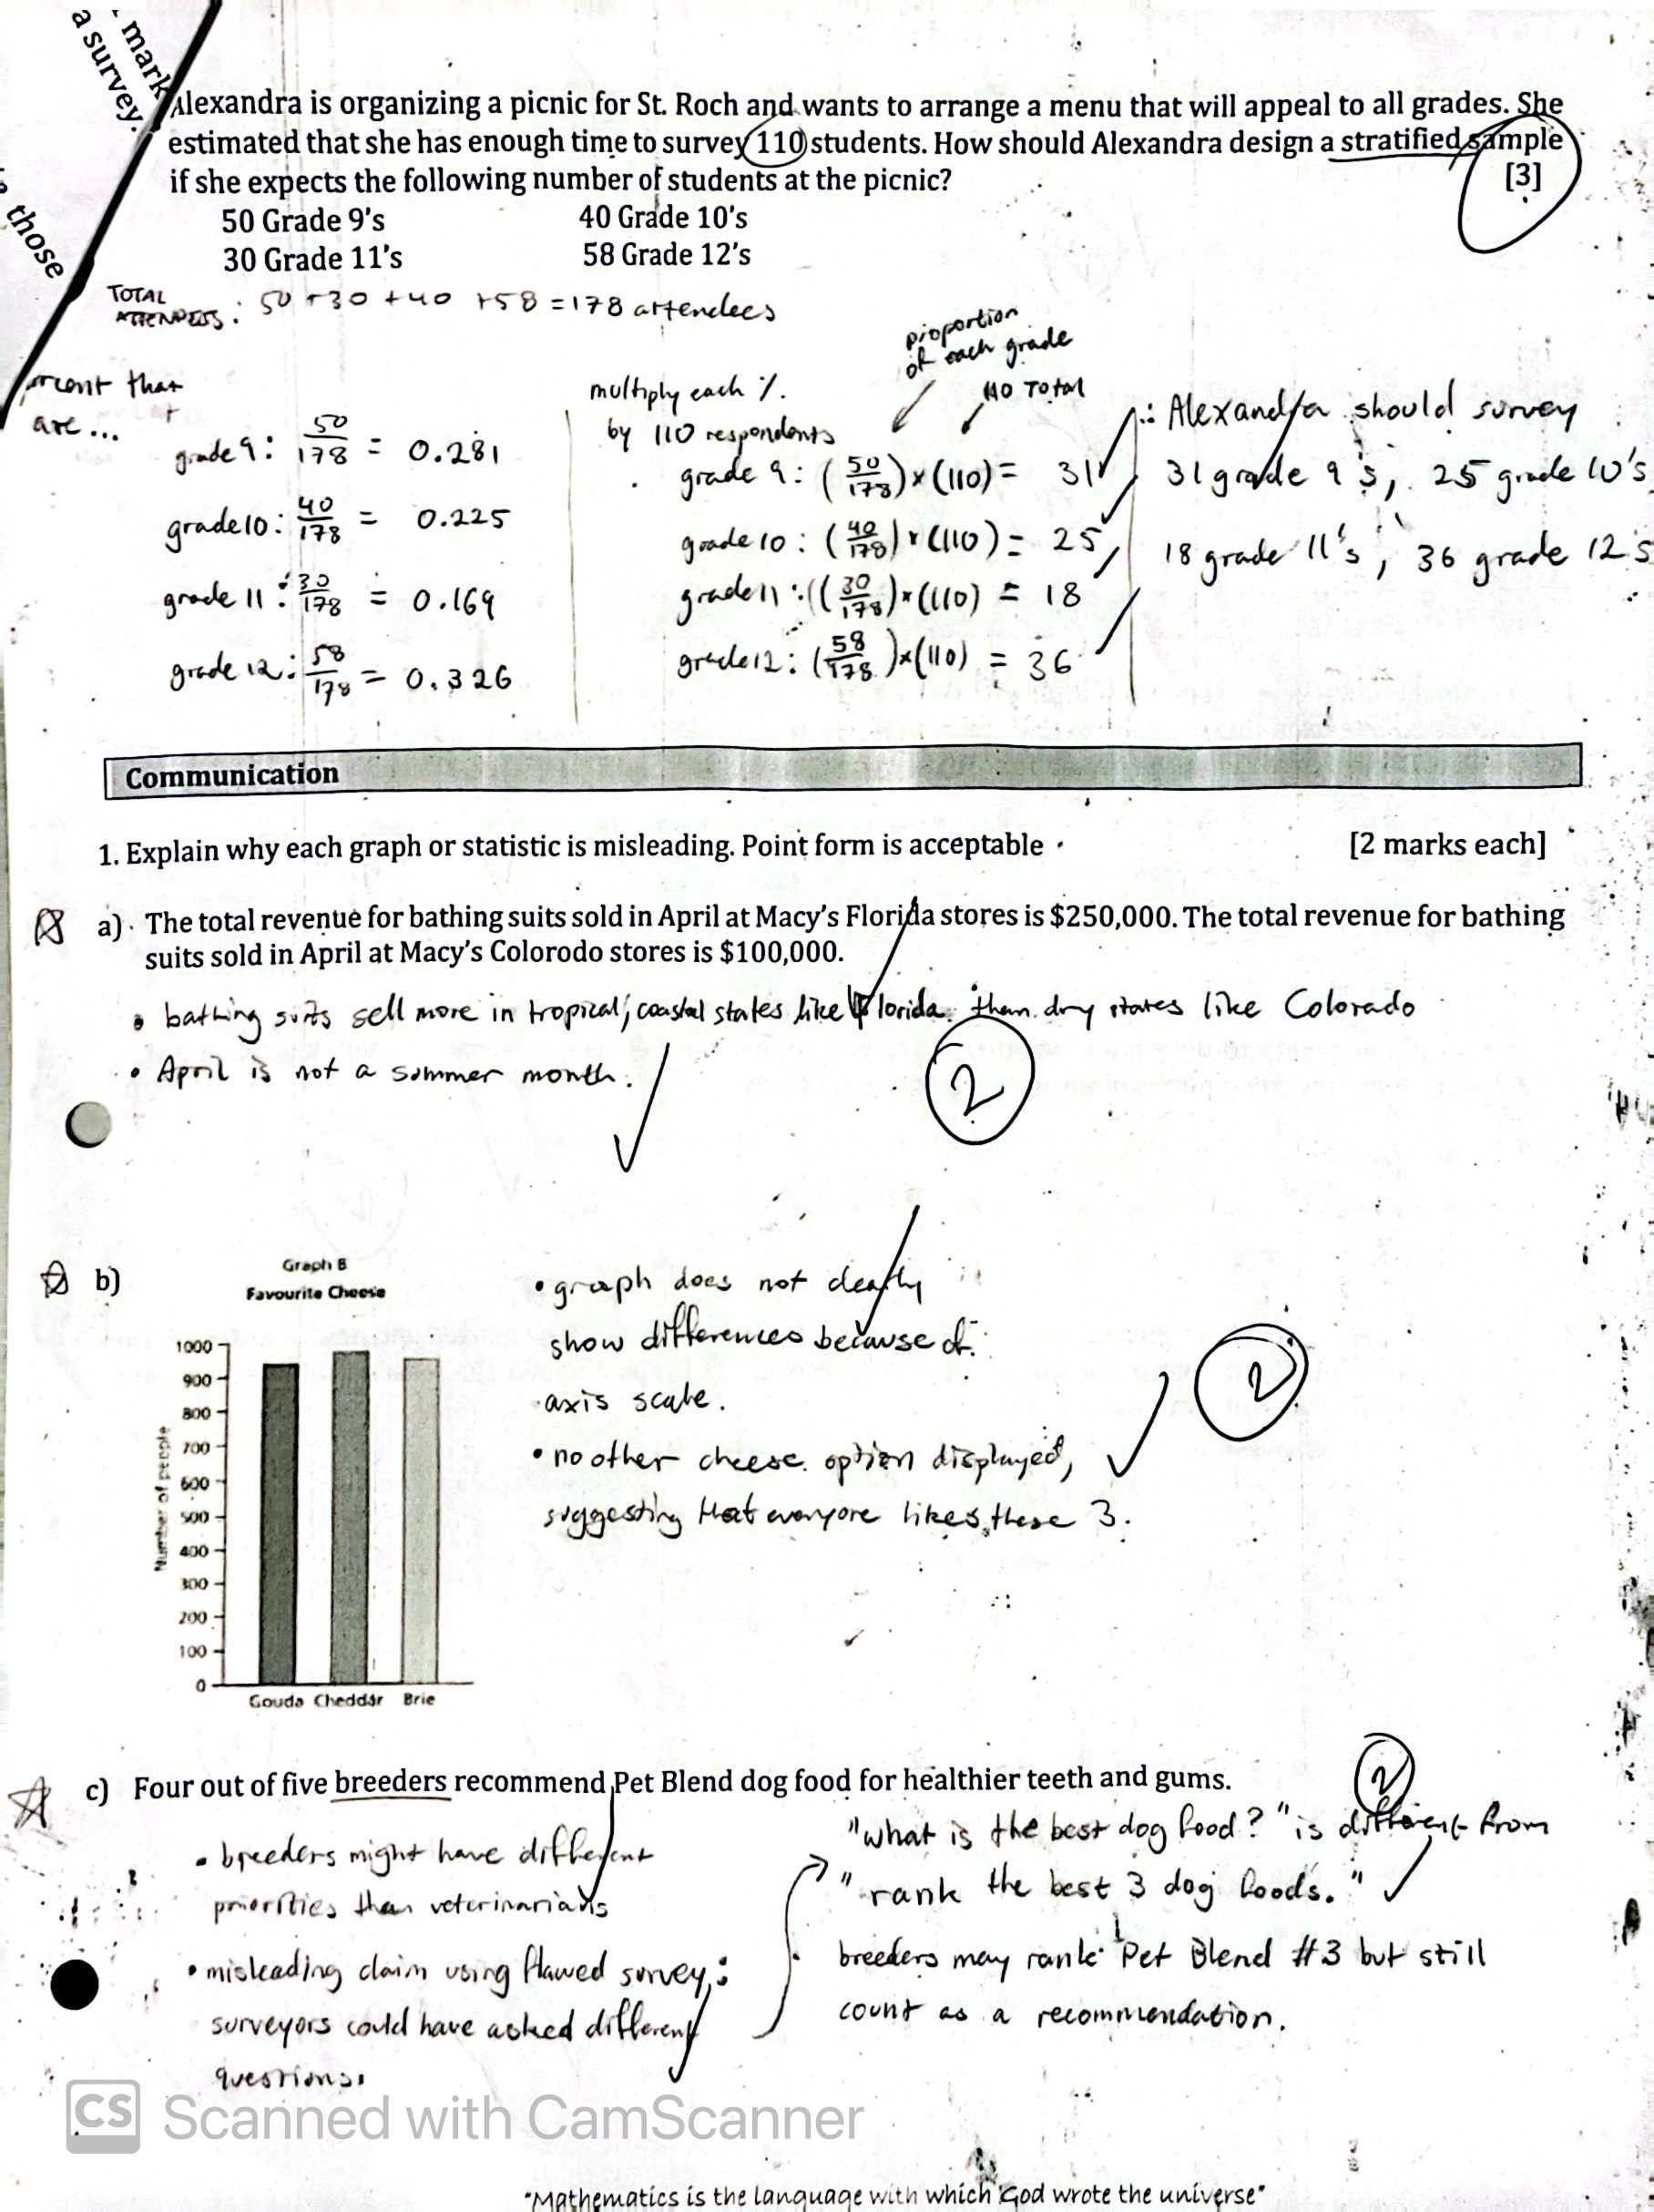 mark
a survey.
those
Alexandra is organizing a picnic for St. Roch and wants to arrange a menu that will appeal to all grades. She
estimated that she has enough time to survey 110 students. How should Alexandra design a stratified sample
if she expects the following number of students at the picnic? [3]
50 Grade 9's 40 Grade 10's
30 Grade 11's 58 Grade 12's
TOTAL
ATTENDEES: 50 + 30 + 40 + 58 = 178 attendees
percent that
are...
grade 9: 50/178 = 0.281
grade 10: 40/178 = 0.225
grade 11: 30/178 = 0.169
grade 12: 58/178 = 0.326
multiply each %
by 110 respondents
proportion
of each grade
110 Total
grade 9: (50/178)x(110) = 31
grade 10: (40/178)x(110) = 25
grade 11: (30/178)x(110) = 18
grade 12: (58/178)x(110) = 36
∴ Alexandra should survey
31 grade 9's, 25 grade 10's
18 grade 11's, 36 grade 12's
Communication
1. Explain why each graph or statistic is misleading. Point form is acceptable [2 marks each]
a) The total revenue for bathing suits sold in April at Macy's Florida stores is $250,000. The total revenue for bathing
suits sold in April at Macy's Colorodo stores is $100,000.
• bathing suits sell more in tropical, coastal states like Florida than dry states like Colorado
• April is not a summer month.
2
b)
Graph B
Favourite Cheese
Number of people
1000
900
800
700
600
500
400
300
200
100
0
Gouda Cheddar Brie
• graph does not clearly
show differences because of
axis scale.
• no other cheese option displayed,
suggesting that everyone likes these 3.
2
c) Four out of five breeders recommend Pet Blend dog food for healthier teeth and gums.
2
• breeders might have different
priorities than veterinarians
• misleading claim using flawed survey:
surveyors could have asked different
questions.
"What is the best dog food?" is different from
"rank the best 3 dog foods."
breeders may rank Pet Blend #3 but still
count as a recommendation.
CS Scanned with CamScanner
"Mathematics is the language with which God wrote the universe"